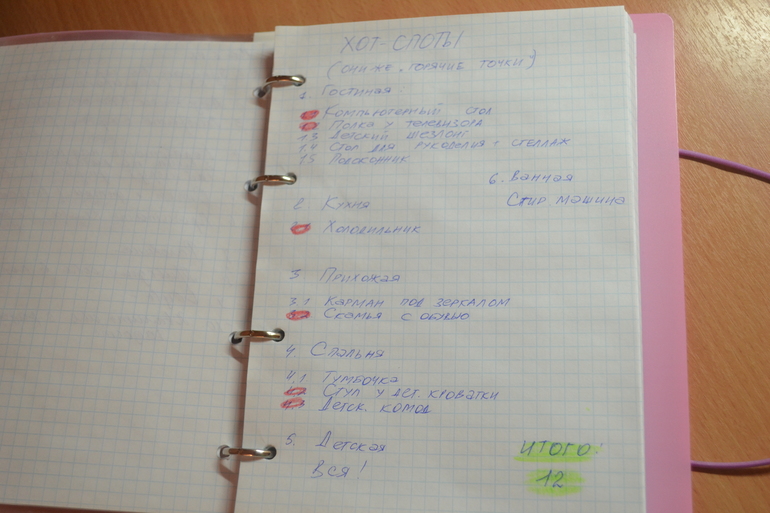 ХОТ-СПОТЫ
(ОНИ ЖЕ "ГОРЯЧИЕ ТОЧКИ")
1. Гостиная:
Компьютерный стол
Полка у телевизора
1.3 Детский шезлонг
1.4 Стол для рукоделия + стеллаж
1.5 Подоконник
6. Ванная
Стир. машина
2. Кухня
Холодильник
3 Прихожая
3.1 Карман под зеркалом
Скамья с обувью
4. Спальня
4.1 Тумбочка
Стул у дет. кроватки
Детск. комод
5. Детская
Вся!
ИТОГО:
12